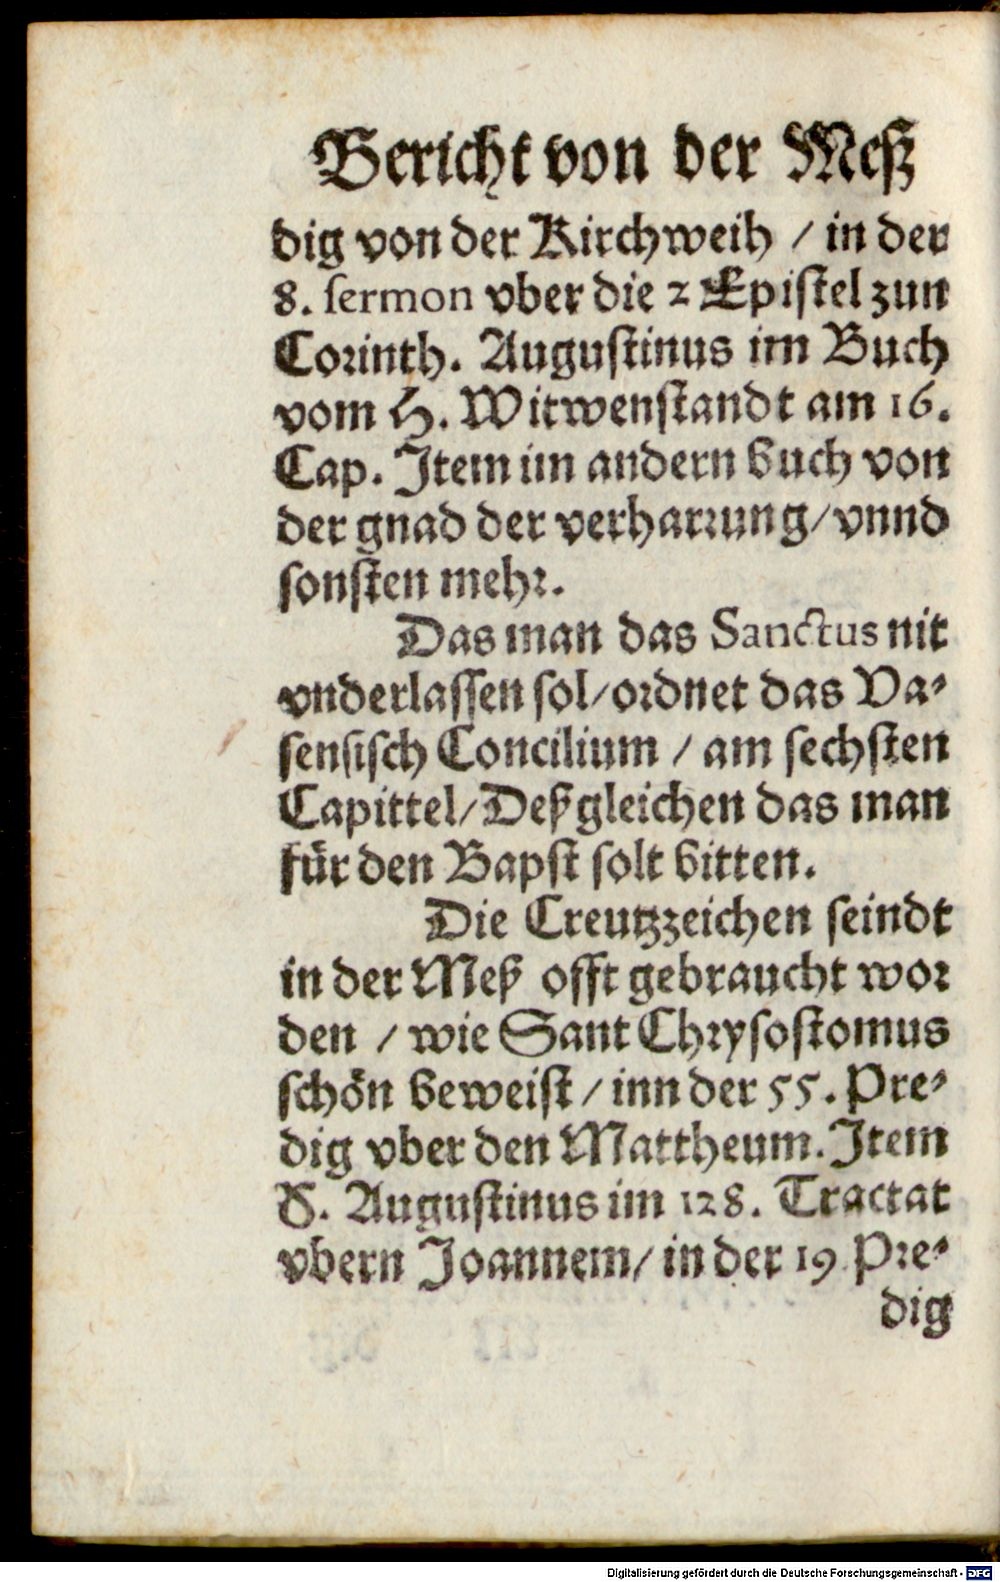 Bericht von der Meß
dig von der Kirchweih / in der
8. sermon vber die 2 Epistel zun
Corinth. Augustinus im Buch
vom H. Witwenstandt am 16.
Cap. Item im andern buch von
der gnad der verharrung/vnnd
sonsten mehr.
Das man das Sanctus nit
vnderlassen sol/ordnet das Va-
sensisch Concilium / am sechsten
Capittel/Deßgleichen das man
für den Bapst solt bitten.
Die Creutzzeichen seindt
in der Meß offt gebraucht wor
den / wie Sant Chrysostomus
schön beweist / inn der 55. Pre-
dig vber den Mattheum. Item
S. Augustinus im 128. Tractat
vbern Joannem/ in der 19 Pre-
dig
Digitalisierung gefördert durch die Deutsche Forschungsgemeinschaft - DFG